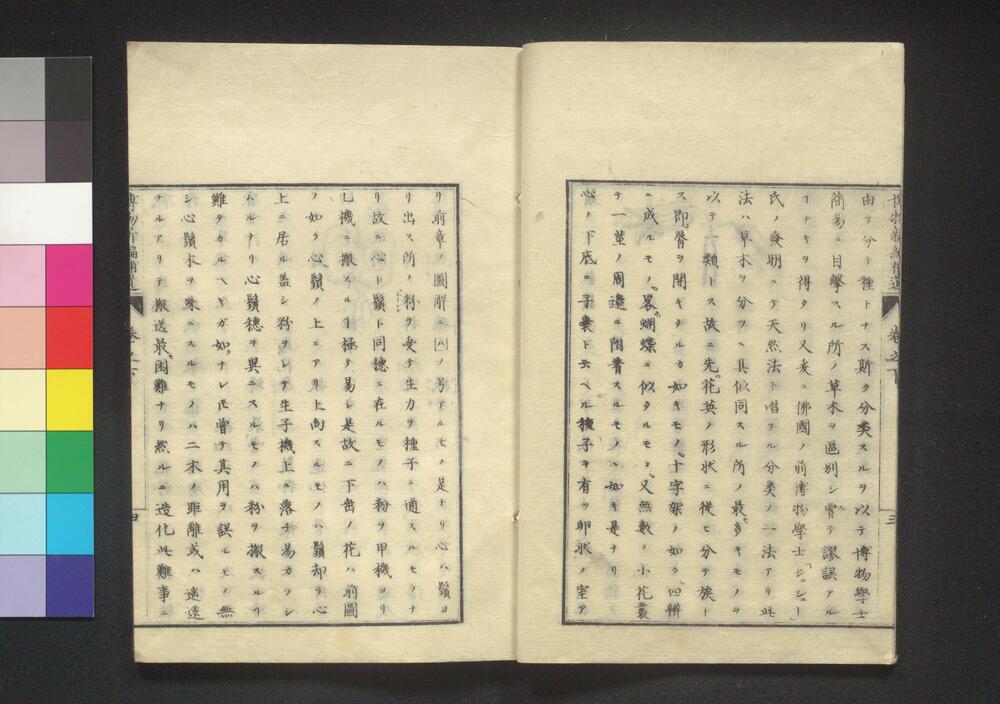 博物新編補遺 卷之下 三
由テ分チ種トナス斯ク分类スルヲ以テ博物學士
簡易ニ目擊スル所ノ草木ヲ區別シ甞テ謬誤アル
ヿナキヲ得タリ又爰ニ佛國ノ前博物學士「ジュシュー」
氏ノ發明ニテ天然法ト唱フル分类ノ一法アリ此
法ハ草木ヲ分ツニ其似同スル所ノ最多キモノヲ
以テ一類トス故ニ先花英ノ形狀ニ從ヒ分テ族ト
ス即脣ヲ開キタルカ如キモノ、十字架ノ如ク、四瓣
ニ成ルモノ、畧蝴蝶ニ似タルモノ、又無數ノ小花叢
テ一莖ノ周邊ニ附着スルモノヽ如キ是ナリ
心ノ下底ニ子囊ト云ヘル種子ヲ有ツ卵狀ノ室ア
リ前章ノ圖解ニ(八)ノ号アルモノ是トリ心ハ鬚ヨ
リ出ス所ノ粉ヲ受テ生力ヲ種子ニ通スルモノナ
リ故ニ心ト鬚ト同穗ニ在ルモノハ粉ヲ甲機ヨリ
乙機ニ搬スルヿ極テ易シ是故ニ下出ノ花ハ前圖
ノ如ク心鬚ノ上ニアリ上向スルモノハ鬚却テ心
上ニ居ル盖シ粉ヲシテ生子機上ニ落チ易カラシ
ムルナリ心鬚穗ヲ異ニスルモノハ粉ヲ搬スルヿ
難タカルヘキガ如ナレ𪜈曾テ其用ヲ誤ルモノ無
シ心鬚木ヲ殊ニスルモノハ二木ノ距離或ハ遙遠
ナルアリテ搬送最困難ナリ然ルニ造化此難事ニ
博物新編補遺 卷之下 四